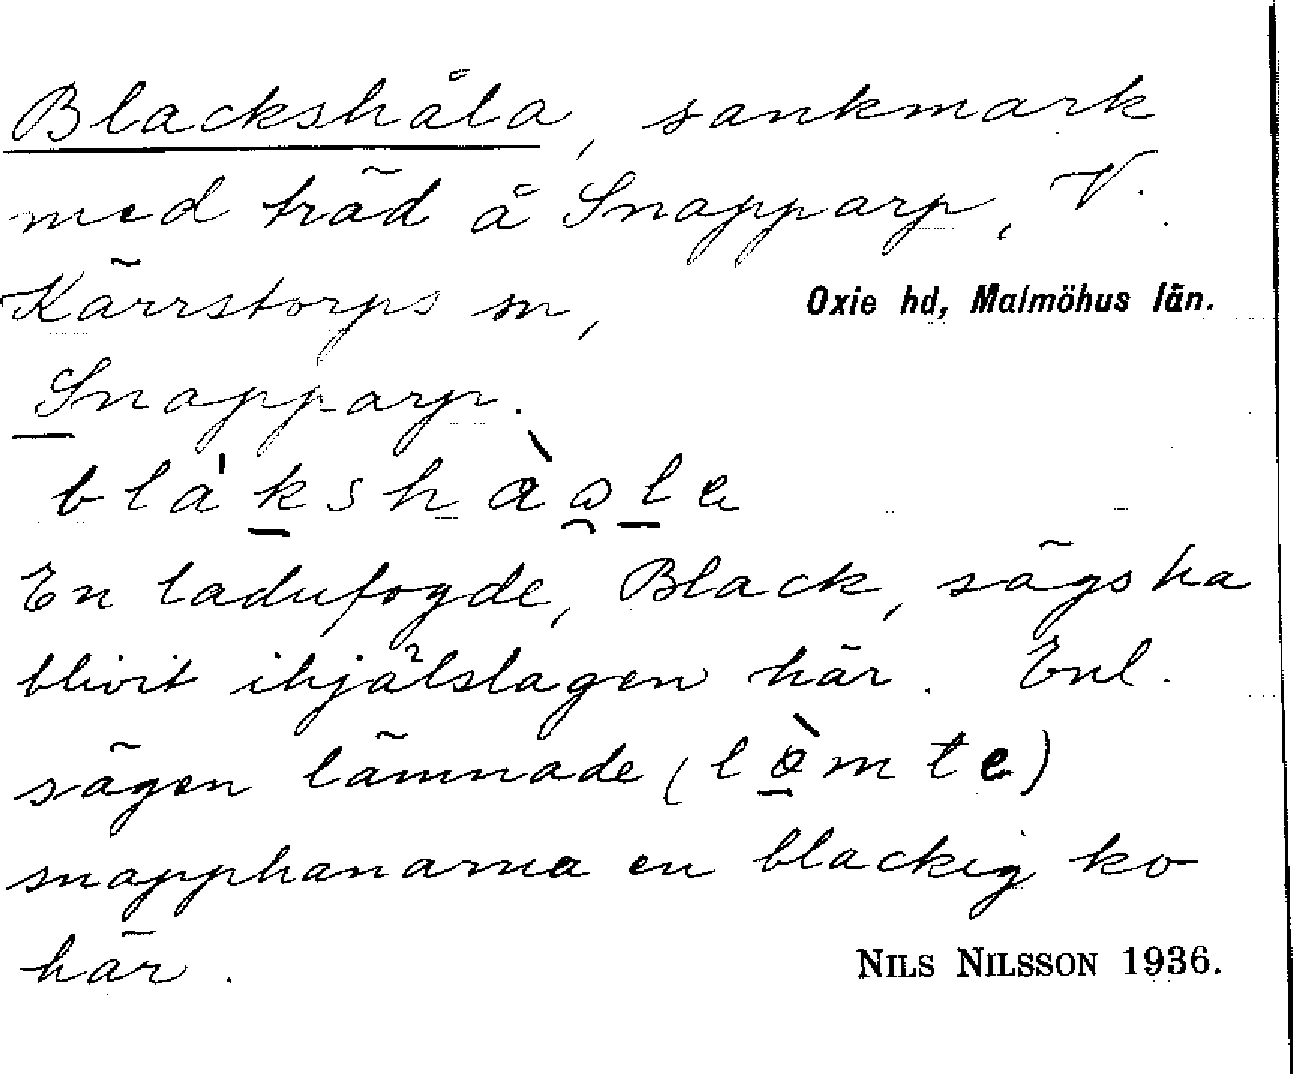 Blackshåla, sankmark
med träd å Snapparp, V.
Kärrstorps sn, Oxie hd, Malmöhus län.
Snapparp.
blákshàɷla
En ladufogde, Black, sägs ha
blivit ihjälslagen här. Enl.
sägen lämnade (lòmte)
snapphanarna en blackig ko
här. NILS NILSSON 1936.